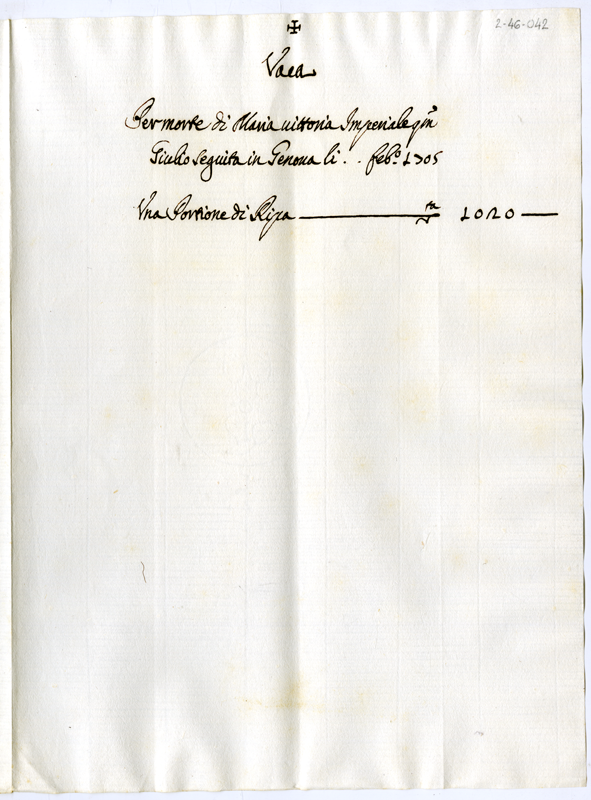 2-46-042
✠
Vaca
Per morte di Maria vittoria Imperiale qm
Giulio seguita in Genova li . . febo. 1705
Una Portione di Ripa ——— 1020 —